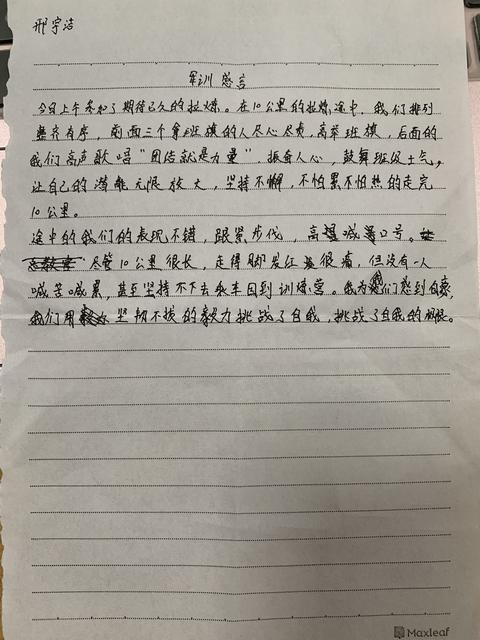 邢宇洁
军训 感言
今日上午参加了期待已久的拉练。在10公里的拉练途中,我们排列
整齐有序,前面三个拿班旗的人尽心尽责,高举班旗,后面的
我们高声歌唱“团结就是力量”,振奋人心,鼓舞班级士气,
让自己的潜能无限放大,坚持不懈,不怕累不怕热的走完
10公里。
途中的我们的表现不错,跟紧步伐,高喊口号。
尽管10公里很长,走得脚发红很痛,但没有一人
喊苦喊累,甚至坚持不下去乘车回到训练营。我为我们感到自豪,
我们用坚韧不拔的毅力挑战了自我,挑战了自我的极限。
Maxleaf